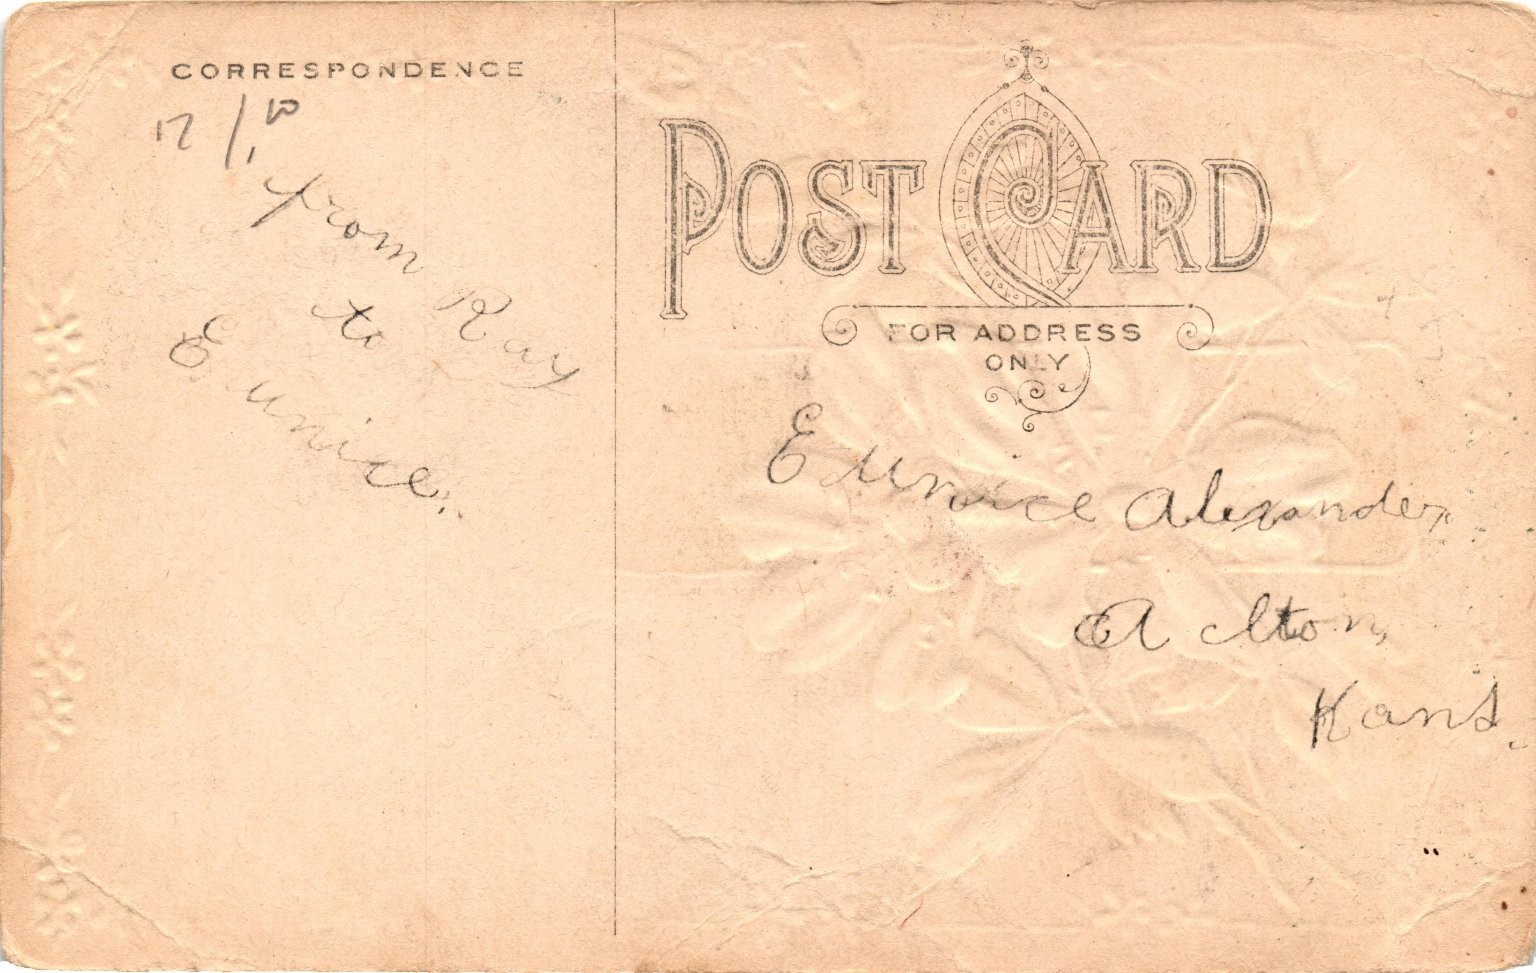 CORRESPONDENCE
from Ray
to
Eunice.
POST CARD
FOR ADDRESS
ONLY
Eunice Alexander
Alton,
Kans.